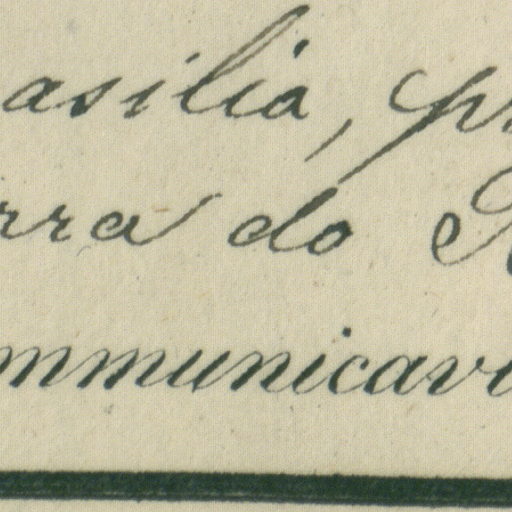 asilia, p
rra do R
ommunicav